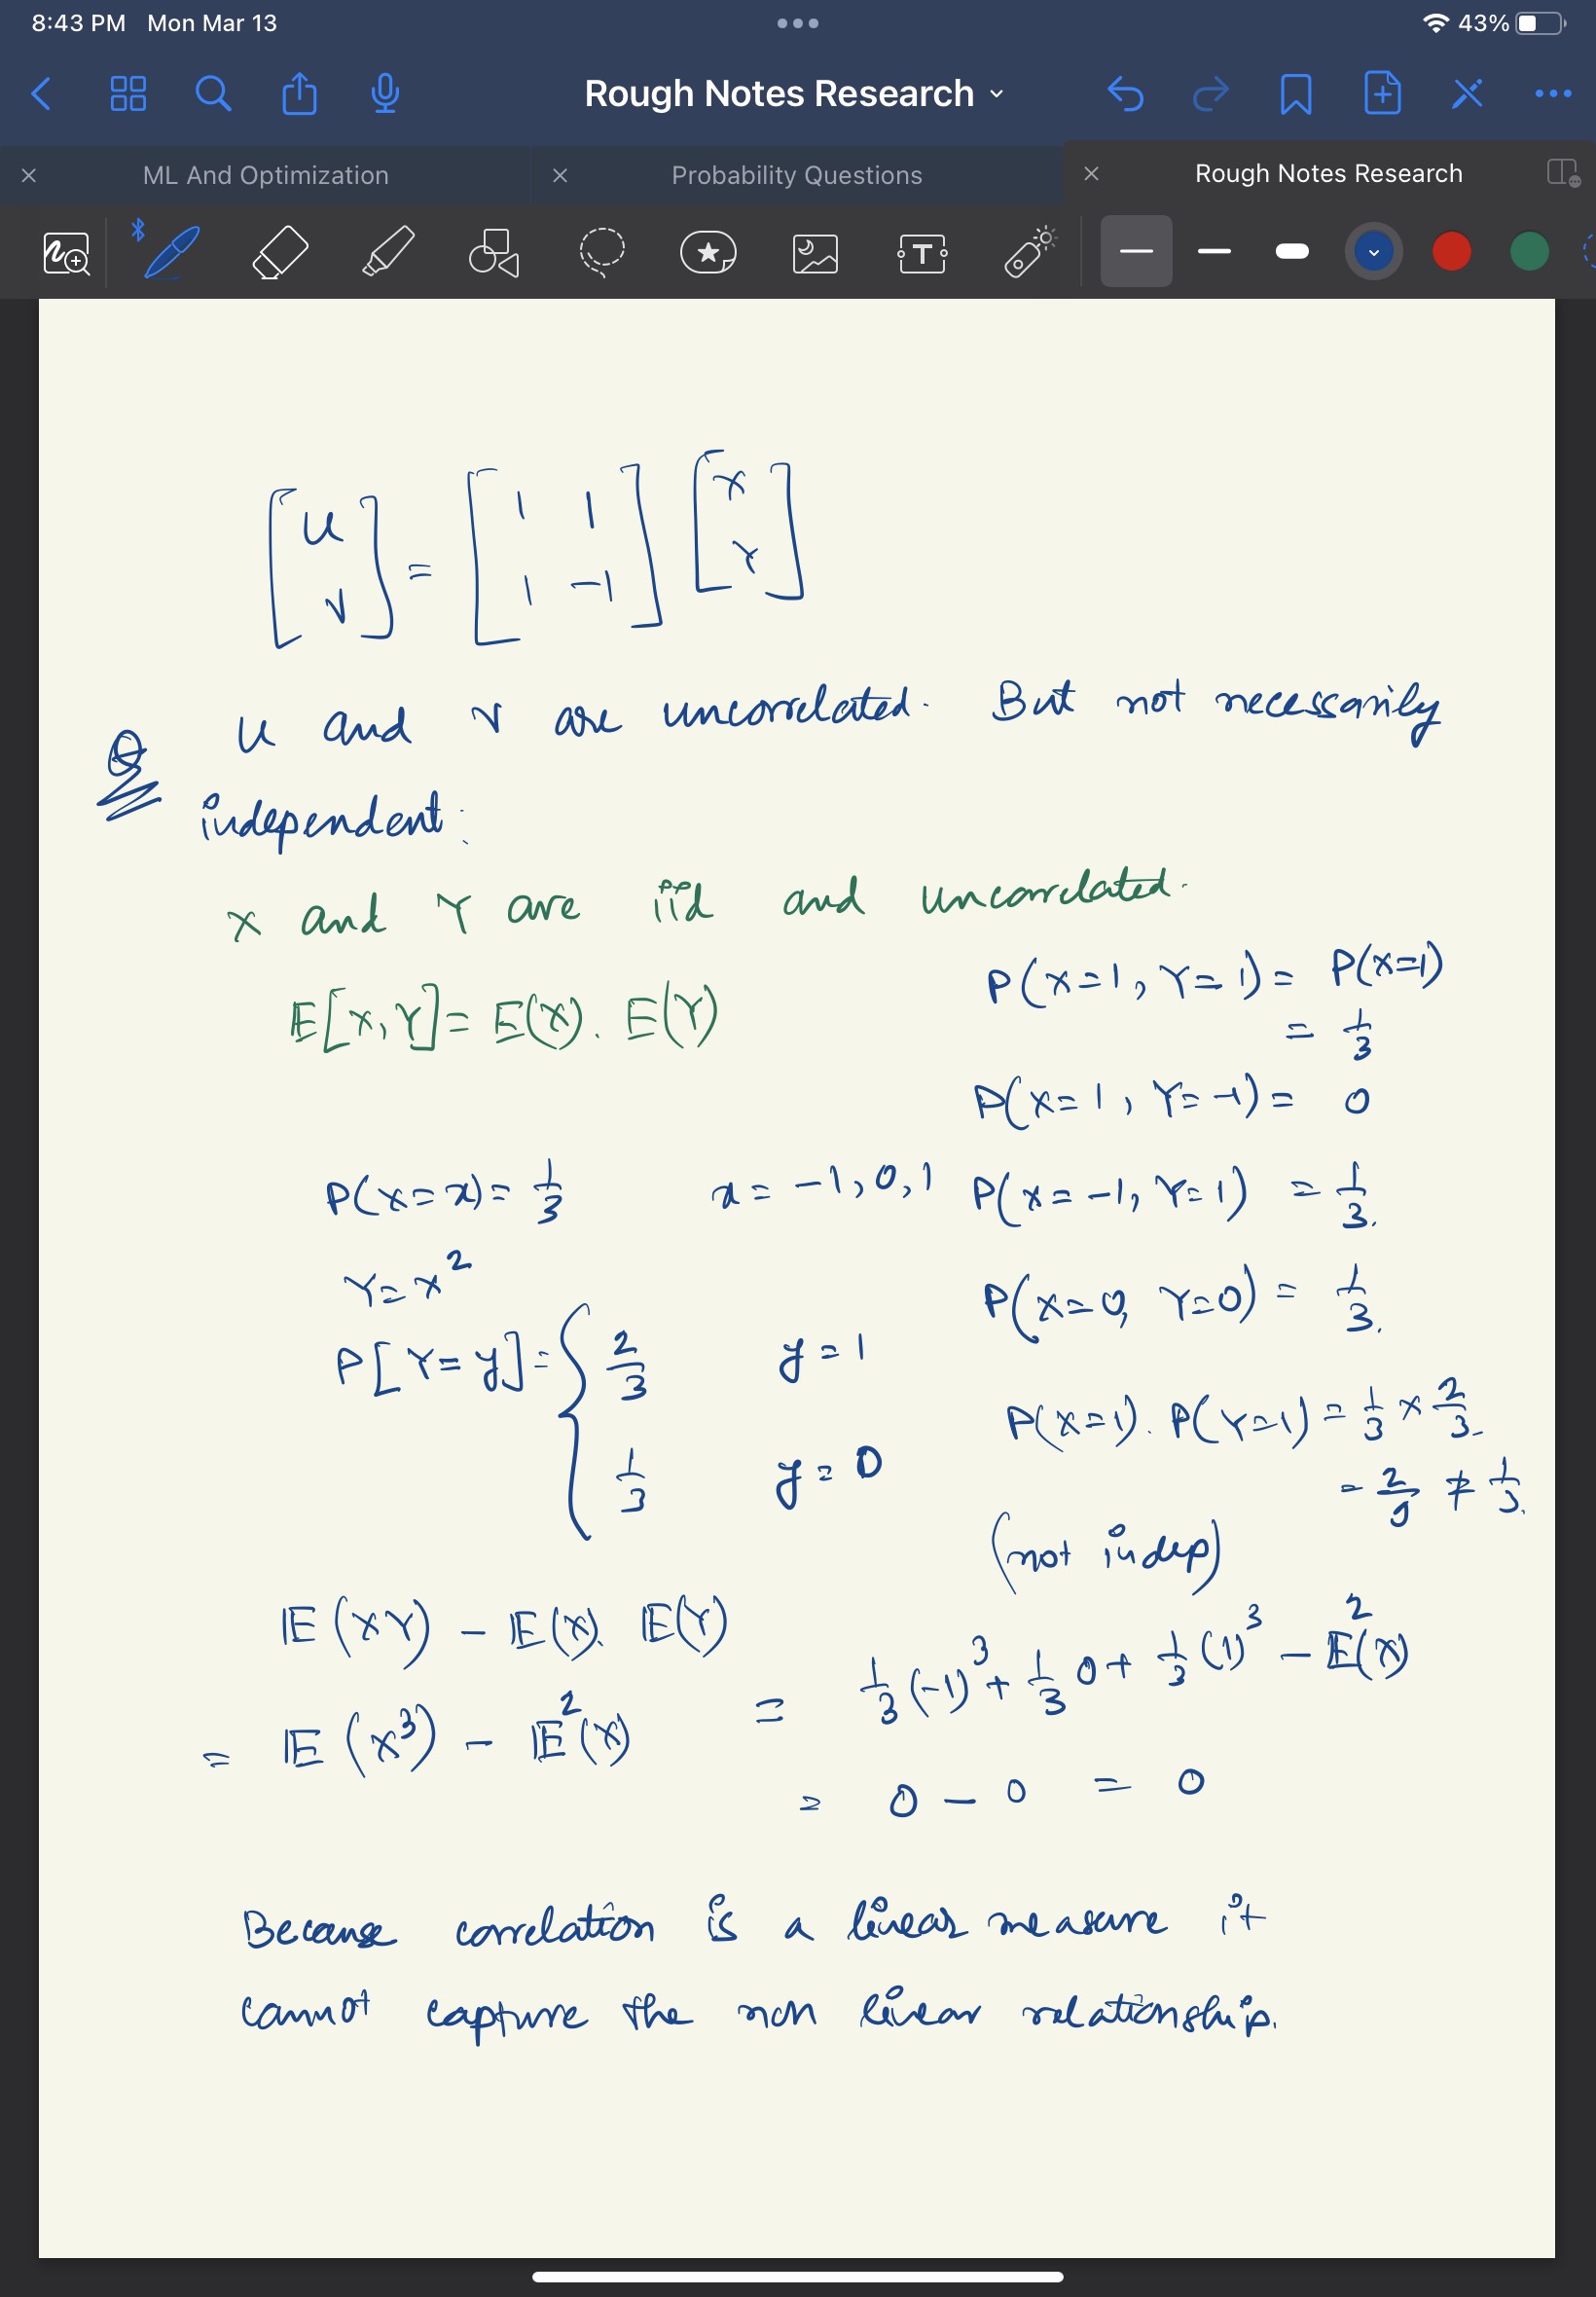 8:43 PM Mon Mar 13
43%
Rough Notes Research
ML And Optimization
Probability Questions
Rough Notes Research
T
[U V] = [1 1 1 -1] [X Y]
Q U and V are uncorrelated. But not necessarily
independent:
X and Y are iid and uncorrelated.
E[X,Y] = E(X). E(Y)
P(X=x) = 1/3 x = -1, 0, 1
Y = X²
P[Y=y] = { 2/3 y = 1
1/3 y = 0
P(X=1, Y=1) = P(X=1)
= 1/3
P(X=1, Y=-1) = 0
P(X=-1, Y=1) = 1/3.
P(X=0, Y=0) = 1/3.
P(X=1). P(Y=1) = 1/3 × 2/3.
= 2/9 ≠ 1/3.
(not indep)
E(XY) - E(X). E(Y)
= E(X³) - E²(X) = 1/3(-1)³ + 1/3 0 + 1/3(1)³ - E²(X)
= 0 - 0 = 0
Because correlation is a linear measure it
cannot capture the non linear relationship.